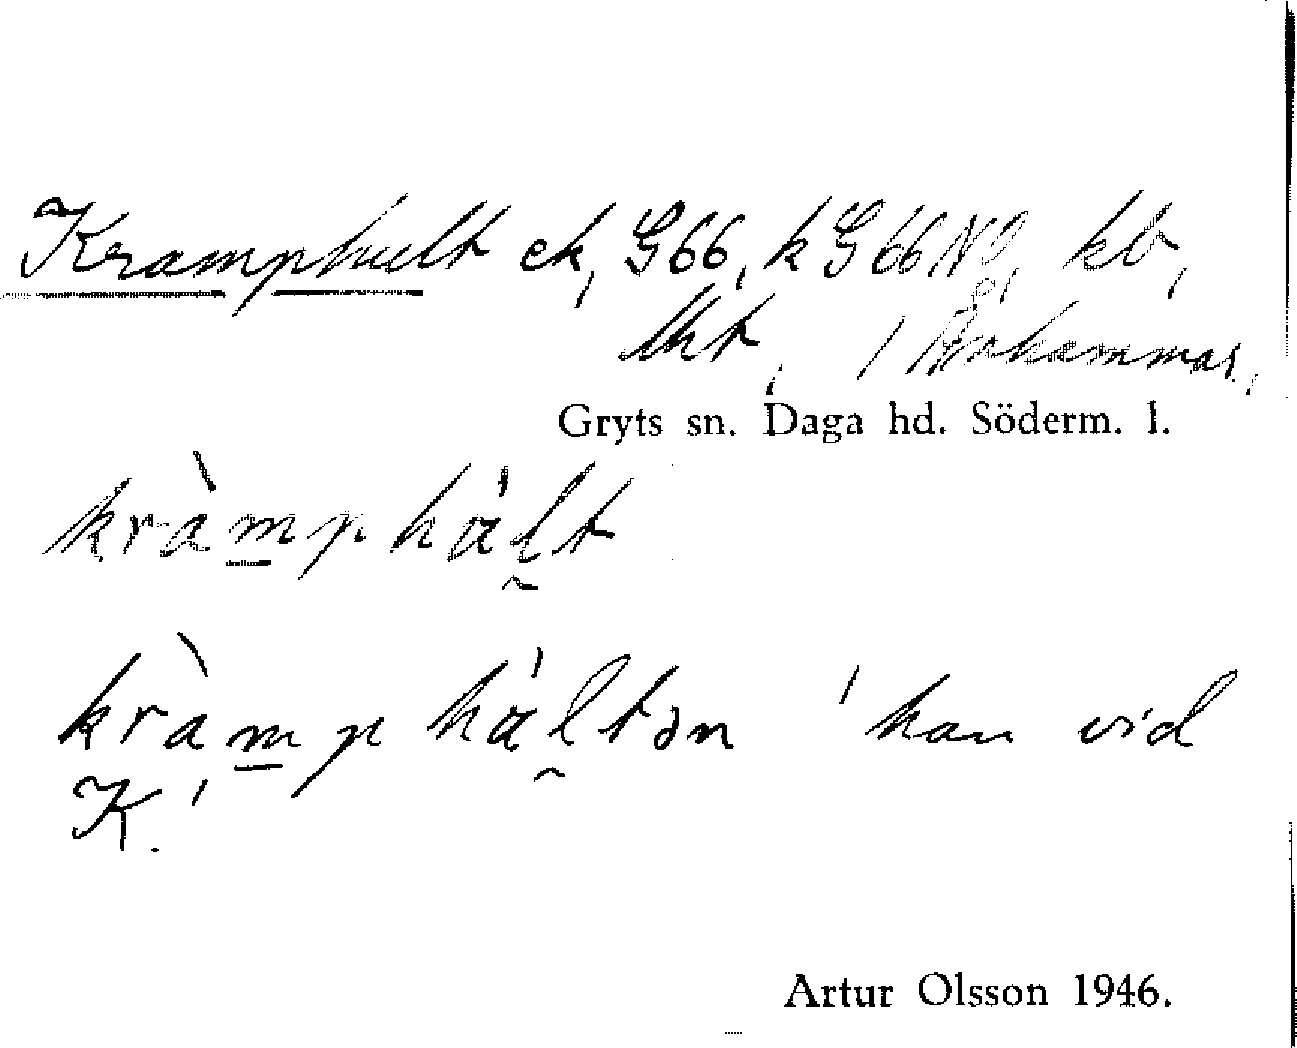 Kramphult ek, G66, k G66 NO, kb,
lht, / Århammar,
Gryts sn. Daga hd. Söderm. l.
kràmphált
kràmpháltən 'han vid
K.'
Artur Olsson 1946.